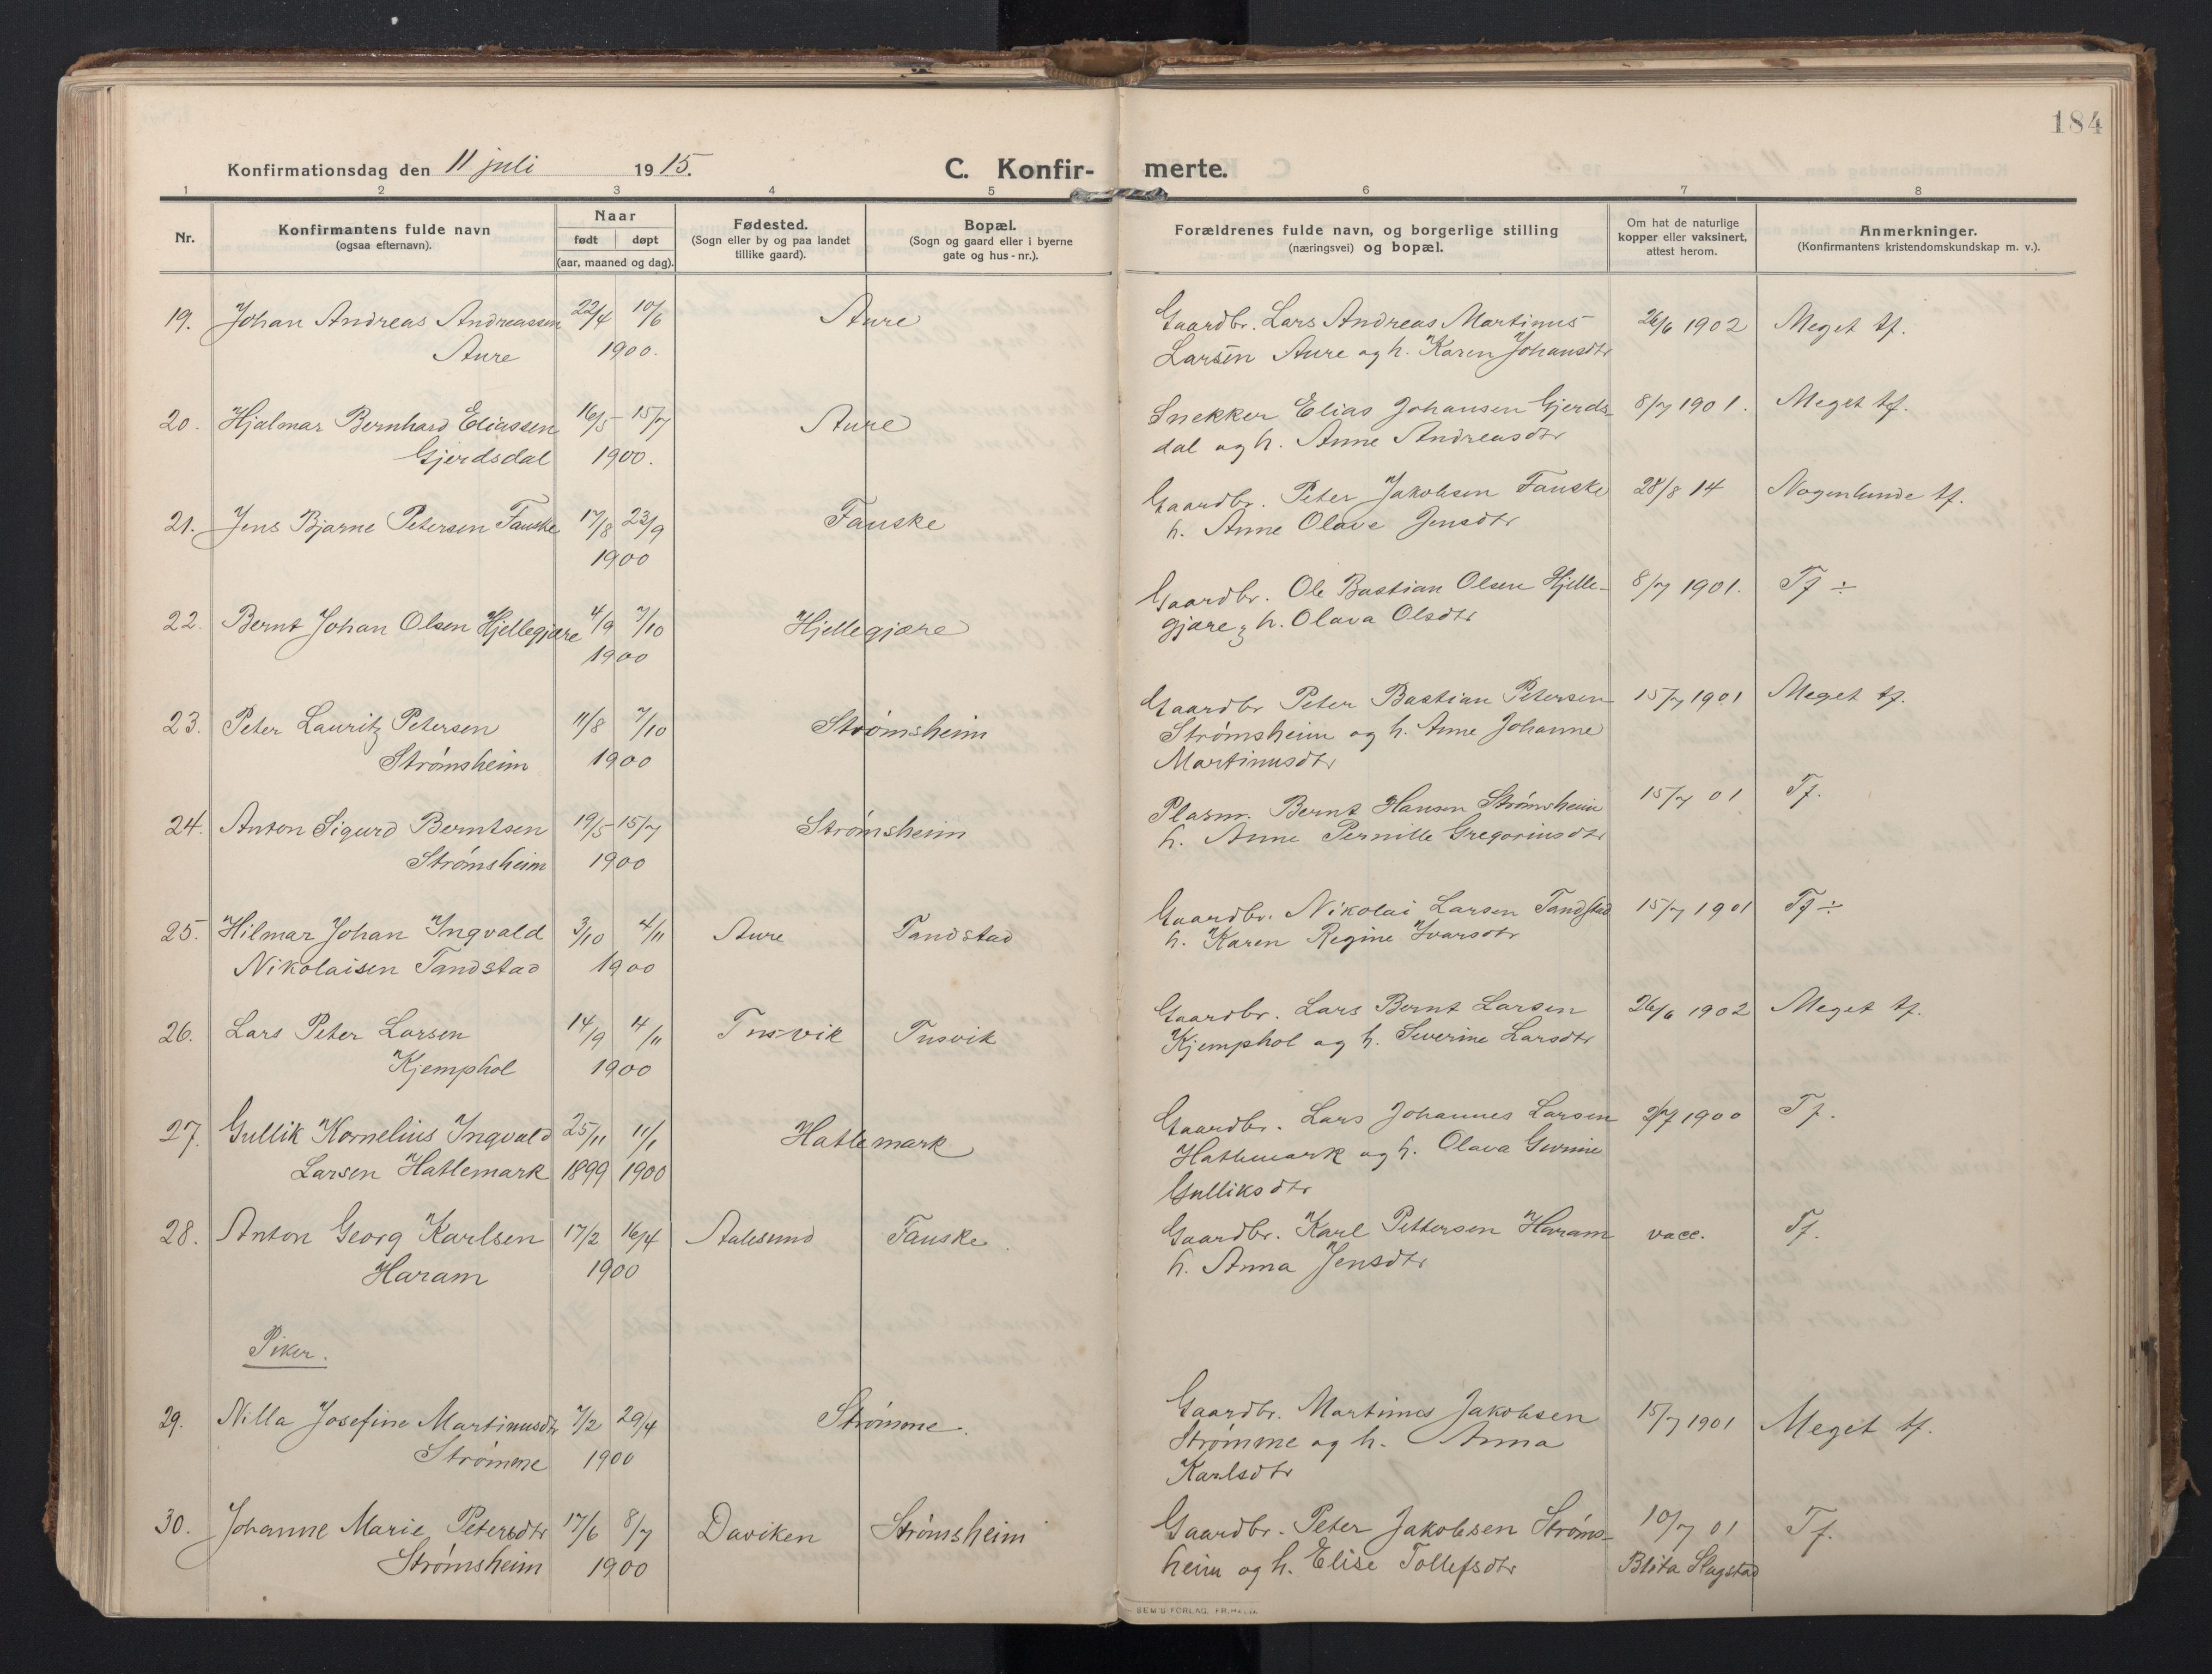 184
Konfirmationsdag den 11 juli 1915. C. Konfir- merte.
1 2 3 4 5 6 7 8
Nr.
Konfirmantens fulde navn
(ogsaa efternavn).
Naar
født døpt
(aar, maaned og dag).
Fødested.
(Sogn eller by og paa landet
tillike gaard).
Bopæl.
(Sogn og gaard eller i byerne
gate og hus-nr.).
Forældrenes fulde navn, og borgerlige stilling
(næringsvei) og bopæl.
Om hat de naturlige
kopper eller vaksinert,
attest herom.
Anmerkninger.
(Konfirmantens kristendomskundskap m. v.).
19. Johan Andreas Andreassen 22/4 10/6 Aure Gaardbr. Lars Andreas Martinus 26/6 1902 Meget tf.
Aure 1900. Larsen Aure og h. Karen Johansdtr
20. Hjalmar Bernhard Eliassen 16/5 - 15/7 Aure Snekker Elias Johansen Gjerds- 8/7 1901. Meget tf.
Gjerdsdal 1900. dal og h. Anne Andreasdtr
21. Jens Bjarne Petersen Fauske 17/8 23/9 Fauske Gaardbr. Peter Jakobsen Fauske 28/8 14 Nogenlunde tf.
1900 h. Anne Olave Jensdtr
22. Bernt Johan Olsen Hjellegjære 4/9 7/10 Hjellegjære Gaardbr. Ole Bastian Olsen Hjelle- 8/7 1901. Tf ÷
1900 gjære, h. Olava Olsdtr
23. Peter Lauritz Petersen 11/8 7/10 Strømsheim Gaardbr Peter Bastian Petersen 15/7 1901 Meget tf.
Strømsheim 1900 Strømsheim og h. Anne Johanne
Martinusdtr
24. Anton Sigurd Berntsen 19/5 - 15/7 Strømsheim Plasm. Bernt Hansen Strømsheim 15/7 01 Tf.
Strømsheim 1900 h. Anne Pernille Gregoriusdtr
25. Hilmar Johan Ingvald 3/10 4/11 Aure Tandstad Gaardbr. Nikolai Larsen Tandstad 15/7 1901 Tf ÷
Nikolaisen Tandstad 1900 h. Karen Regine Ivarsdtr
26. Lars Peter Larsen 14/9 4/11 Tusvik Tusvik Gaardbr. Lars Bernt Larsen 26/6 1902 Meget tf.
Kjemphol 1900 Kjemphol og h. Severine Larsdtr
27. Gullik Kornelius Ingvald 25/11 11/1 Hatlemark Gaardbr. Lars Johannes Larsen 2/7 1900 Tf.
Larsen Hatlemark 1899 1900 Hatlemark og h. Olava
Gulliksdtr
28. Anton Georg Karlsen 17/2 16/4 Aalesund Fauske. Gaardbr. Karl Pettersen Haram vacc. Tf.
Haram 1900 h. Anna Jensdtr
Piker.
29. Nilla Josefine Martinusdtr 7/2 29/4 Strømme. Gaardbr. Martinus Jakobsen 15/7 1901 Meget tf.
Strømme 1900 Strømme og h. Anna
Karlsdtr
30. Johanne Marie Petersdtr 17/6 8/7 Daviken Strømsheim Gaardbr. Peter Jakobsen Strøms- 10/7 01 Tf.
Strømsheim 1900 heim og h. Elise Tollefsdtr Slagstad
SEM'S FORLAG